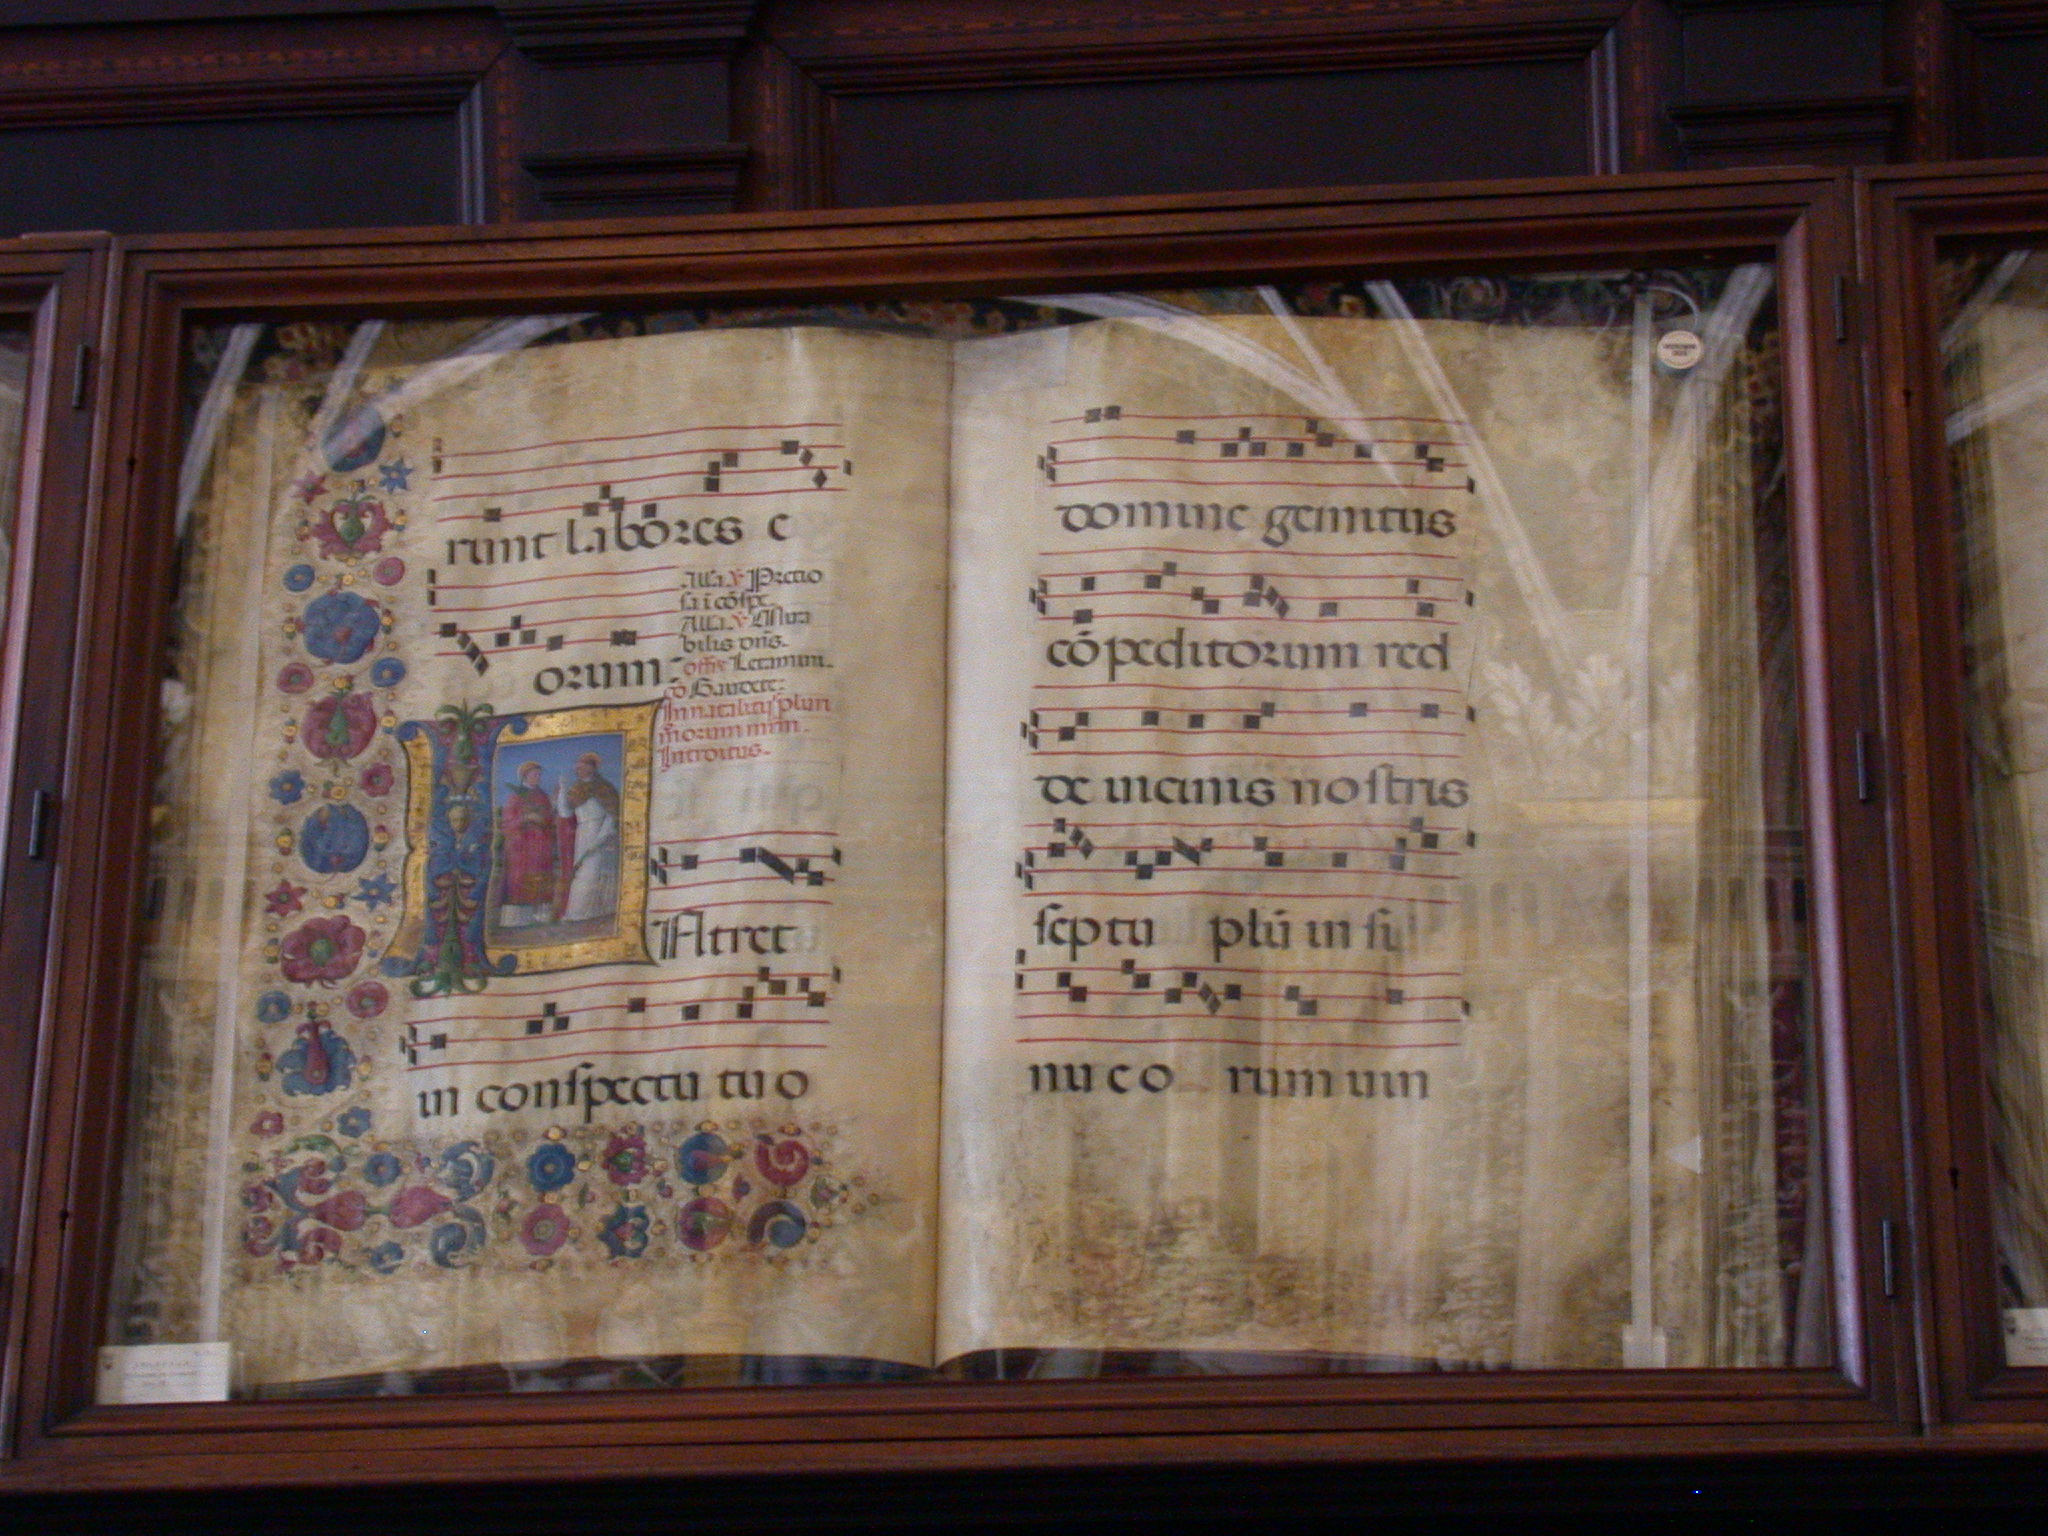 runt labores e
Alla. ℣ Pretio
sa i cōspe.
Alla. ℣ Mira
bilis dn̄s.
orum.
offr̄e Letamini.
cō Gaudete:
In natalitijs plurī
mͦorum mr̄m.
Introitus.
INtret
in conspectu tuo
domine gemitus
cōpeditorum red
de uicinis nostris
septu plū in si
nu eo rum uin